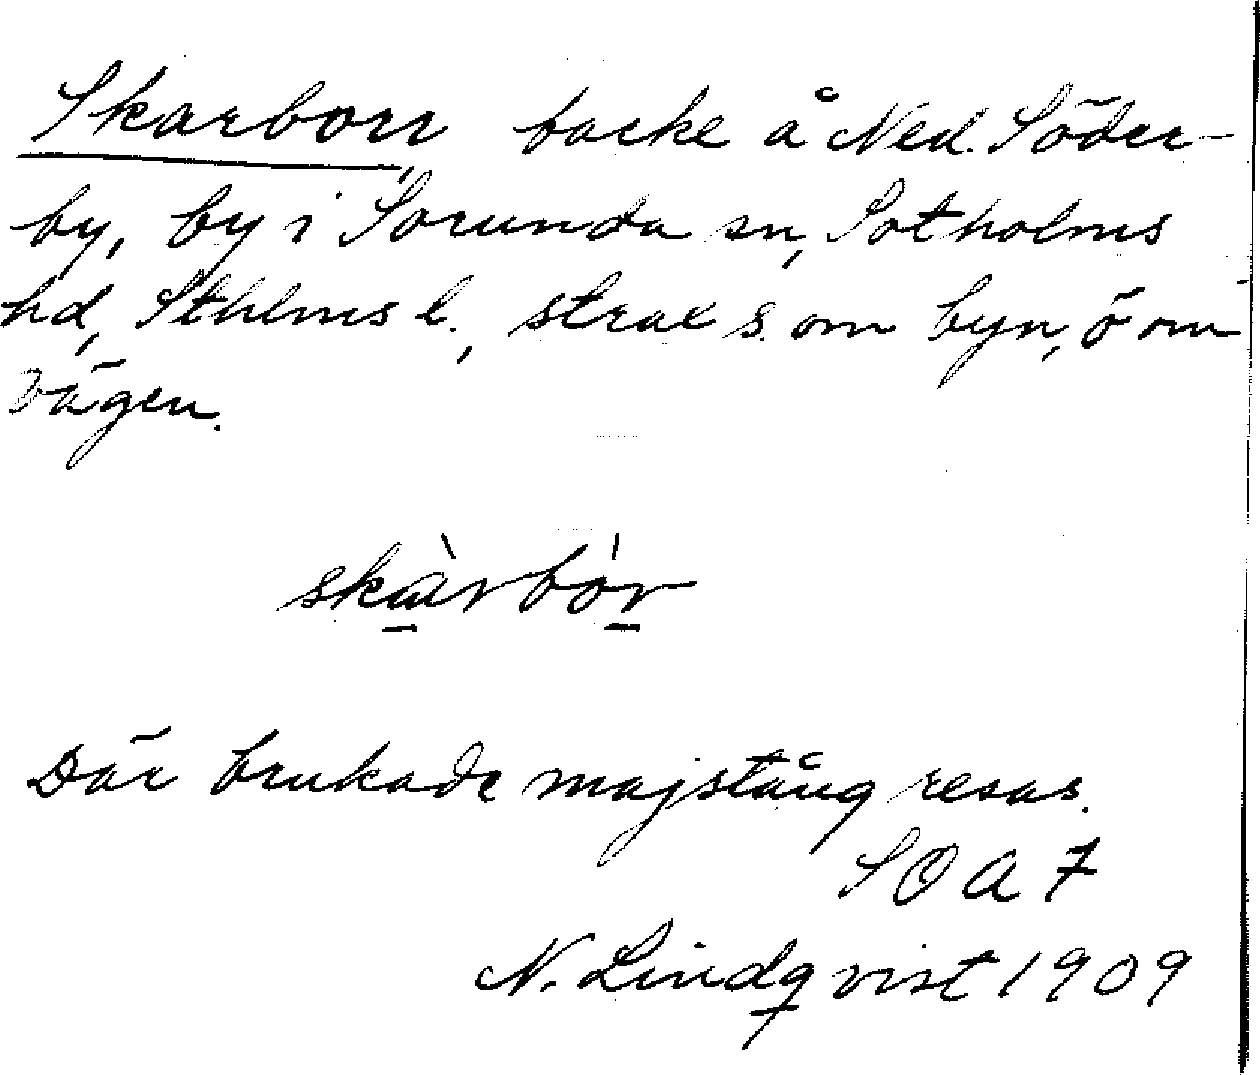 Skarborr, backe å Ned. Söder-
by, by i Sorunda sn, Sotholms
hd, Sthlms l., strax s. om byn, ö om
vägen.
skàrbòr
Där brukade majstång resas.
SOA 7
N. Lindqvist 1909